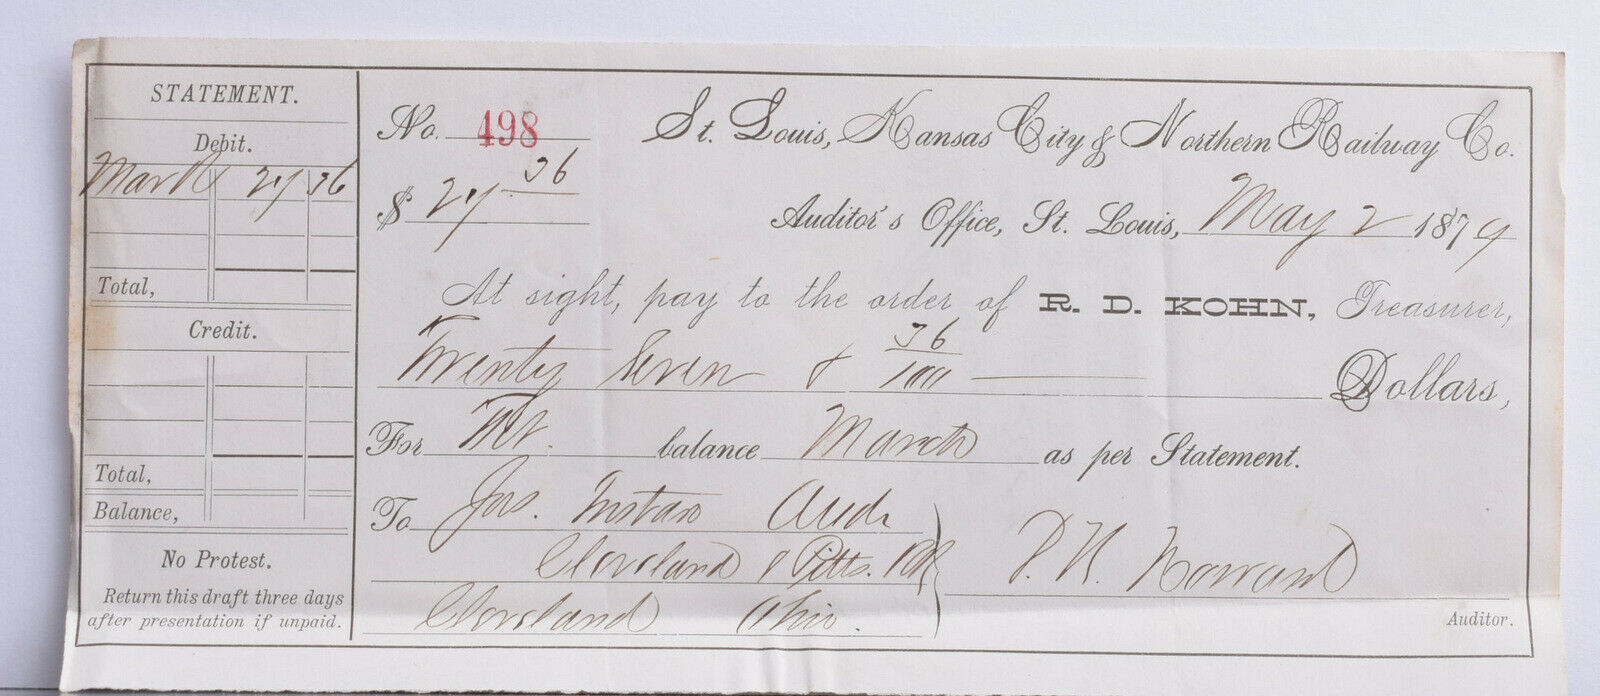 STATEMENT.
Debit.
March 27 36
Total,
Credit.
Total,
Balance,
No Protest.
Return this draft three days
after presentation if unpaid.
No. 498 St. Louis, Kansas City & Northern Railway Co.
$ 27 36
Auditor's Office, St. Louis, May 2 1879
At sight, pay to the order of R. D. KOHN, Treasurer,
Twenty Seven & 36/100 Dollars,
For balance March as per Statement.
To Jas. Aud
Cleveland & Pitts. RR
Cleveland Ohio.
Auditor.